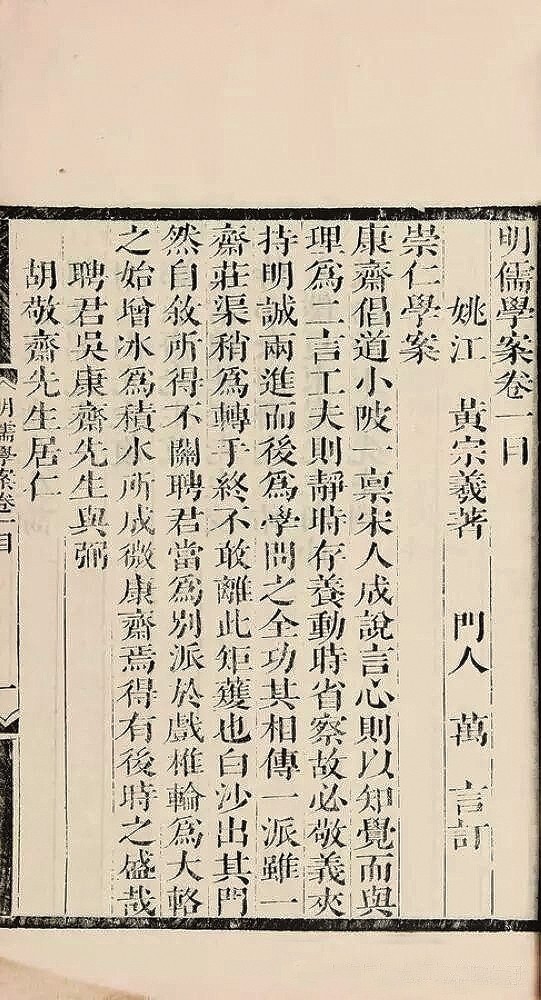 明儒學案卷一目
姚江 黃宗羲著 門人 萬 言訂
崇仁學案
康齋倡道小陂一稟宋人成說言心則以知覺而與
理爲二言工夫則靜時存養動時省察故必敬義夾
持明誠兩進而後爲學問之全功其相傳一派雖一
齋莊渠稍爲轉手終不敢離此矩蒦也白沙出其門
然自敘所得不關聘君當爲別派於戲椎輪爲大輅
之始增冰爲積水所成微康齋焉得有後時之盛哉
聘君吳康齋先生與弼
胡敬齋先生居仁
明儒學案卷一目
一